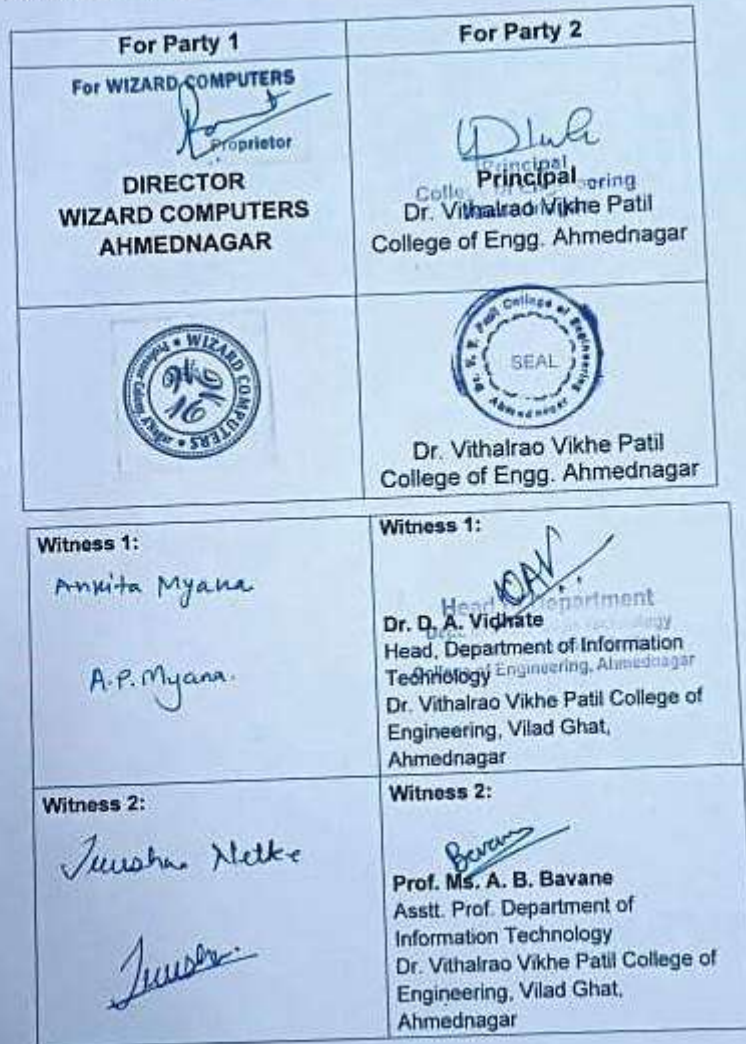 For Party 1
For Party 2
For WIZARD COMPUTERS
Proprietor
DIRECTOR
WIZARD COMPUTERS
AHMEDNAGAR
Principal
Principal
Dr. Vithalrao Vikhe Patil
College of Engg. Ahmednagar
WIZARD COMPUTERS
Dr. V. V. Patil College of Engineering
SEAL
Ahmednagar
Dr. Vithalrao Vikhe Patil
College of Engg. Ahmednagar
Witness 1:
Ankita Myana
A.P. Myana.
Witness 1:
Head Department
Dr. D. A. Vidhate
Head, Department of Information
Technology
Engineering, Ahmednagar
Dr. Vithalrao Vikhe Patil College of
Engineering, Vilad Ghat,
Ahmednagar
Witness 2:
Netke
Witness 2:
Bavane
Prof. Ms. A. B. Bavane
Asstt. Prof. Department of
Information Technology
Dr. Vithalrao Vikhe Patil College of
Engineering, Vilad Ghat,
Ahmednagar